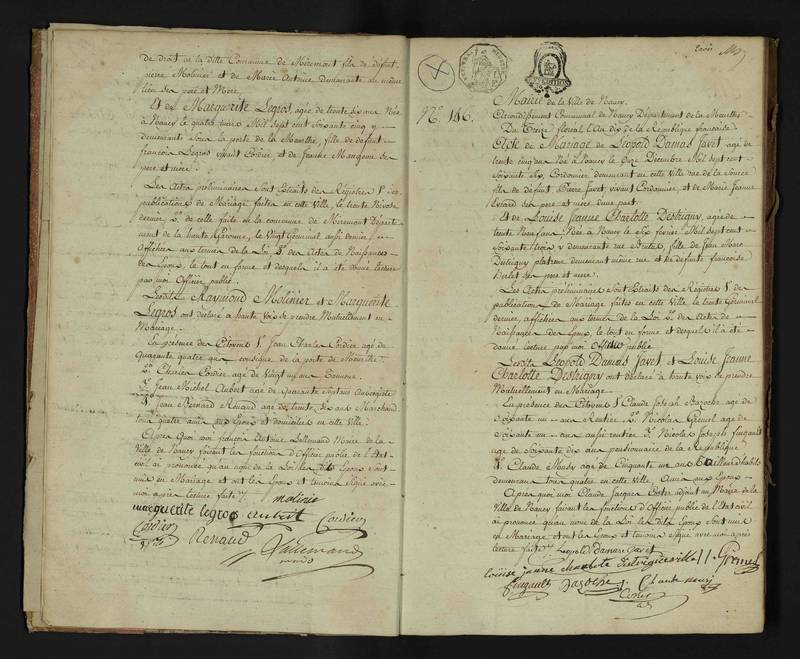 de droit de la ditte Commune de Miremont fils de défunt
pierre Molinier et de Marie Antoine demeurante au même
lieu ses père et Mère,
Et de Marguerite Legros, agée de trente six ans Née
à Nancy le quatre mars Mil sept cent soixante cinq y
demeurante sous la porte de la Meurthe, fille de défunt
françois Legros vivant Cordier et de Jeanne Mangeon ses
père et mère
Les Actes préliminaires sont Extraits des Registres 1º des
publications de Mariage faites en cette Ville, le trente Nivose
dernier, 2º de celle faite en la commune de Miremont Départe
ment de la haute Garonne, le Vingt Germinal aussi dernier
affichées aux termes de la Loi 3º des Actes de Naissances
des Epoux, le tout en forme et desquels il a été donné lecture
par moi Officier public.
Lesdits Raymond Molinier et Marguerite
Legros ont déclaré à haute voix se prendre Mutuellement en
Mariage.
En présence des Citoyens 1º Jean Charles Cordier agé de
Quarante quatre ans consigne de la porte de Meurthe
2º Charles Cordier agé de Vingt un ans
3º Jean Michel Aubert agé de Quarante Sept ans Aubergiste
4º Jean Bernard Renaud agé de trente six ans Marchand
tous quatre amis aux Epoux et domiciliés en cette Ville.
Après Quoi moi françois Antoine Lallemand Maire de la
Ville de Nancy faisant les fonctions d'Officier public de l'Etat
civil ai prononcé qu'au nom de la Loi les dits Epoux sont
unis en Mariage et ont les Epoux et témoins signé avec
moi après lecture faite
molinié
marguerite legros aubert
Cordier Cordier
Renaud
Lallemand
Nº 146.
Mairie de la Ville de Nancy.
Arrondissement Communal de Nancy Département de la Meurthe
Du Treize floréal L'An dix de la République française
Acte de Mariage de Léopold Damas Javet agé de
trente cinq ans Né à Nancy le Onze Décembre Mil sept cent
soixante six, Cordonnier, demeurant en cette Ville rue de la Source
fils de défunt Pierre Javet, vivant Cordonnier, et de Marie Jeanne
ses père et mère d'une part
Et de Louise Jeanne Charlotte Destrigny, agée de
trente Neuf ans Née à Nancy le six février Mil sept cent
soixante trois y demeurante rue fille de Jean Marc
Destrigny platrier demeurant même rue et de défunte françoise
ses père et mère.
Les Actes préliminaires sont Extraits des Registres 1º des
publications de Mariage faites en cette Ville, le trente Germinal
dernier, affichées aux termes de la Loi 2º des Actes de
Naissances des Epoux, le tout en forme et desquels il a été
donné lecture par moi Officier public
Lesdits Léopold Damas Javet et Louise Jeanne
Charlotte Destrigny ont déclaré à haute voix se prendre
Mutuellement en Mariage.
En présence des Citoyens 1º Claude Joseph Bazoche agé de
Soixante un ans Rentier 2º Nicolas Grenel agé de
Soixante un ans aussi rentier 3º Nicolas Joseph Fugault
agé de Soixante dix ans pensionnaire de la République
4º Claude Mussy agé de Cinquante un ans Tailleur d'habits
demeurans tous quatre en cette Ville, Amis aux Epoux
Après quoi moi Claude Jacques Coster adjoint au Maire de la
Ville de Nancy faisant les fonctions d'Officier public de l'Etat civil
ai prononcé qu'au nom de la Loi les dits Epoux sont unis
en Mariage et ont les Epoux et témoins signé avec moi après
lecture faite Léopold damas Javet
louise janne Grenel
fugault Bazoche Claude mussy
Coster